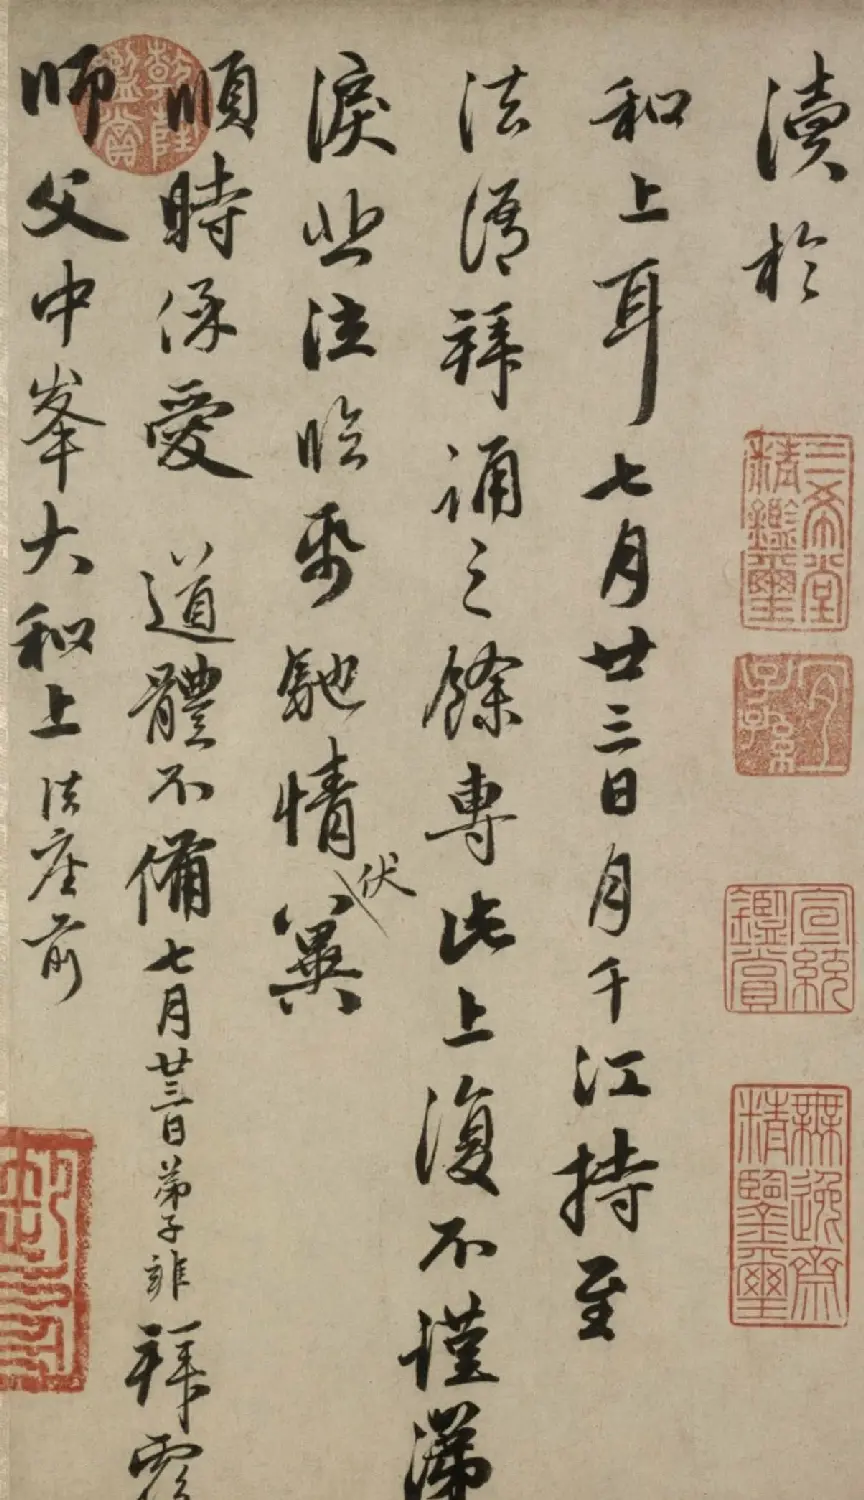 瀆於
和上耳七月廿三日月千江持至
法語拜誦之餘專此上復不謹涕
淚悲泣臨紙馳情伏冀
順時保愛 道體不備七月廿三日弟子雍拜覆
師父中峯大和上法座前
三希堂精鑑璽
宜子孫
宣統鑑賞
無逸齋精鑑璽
乾隆鑑賞